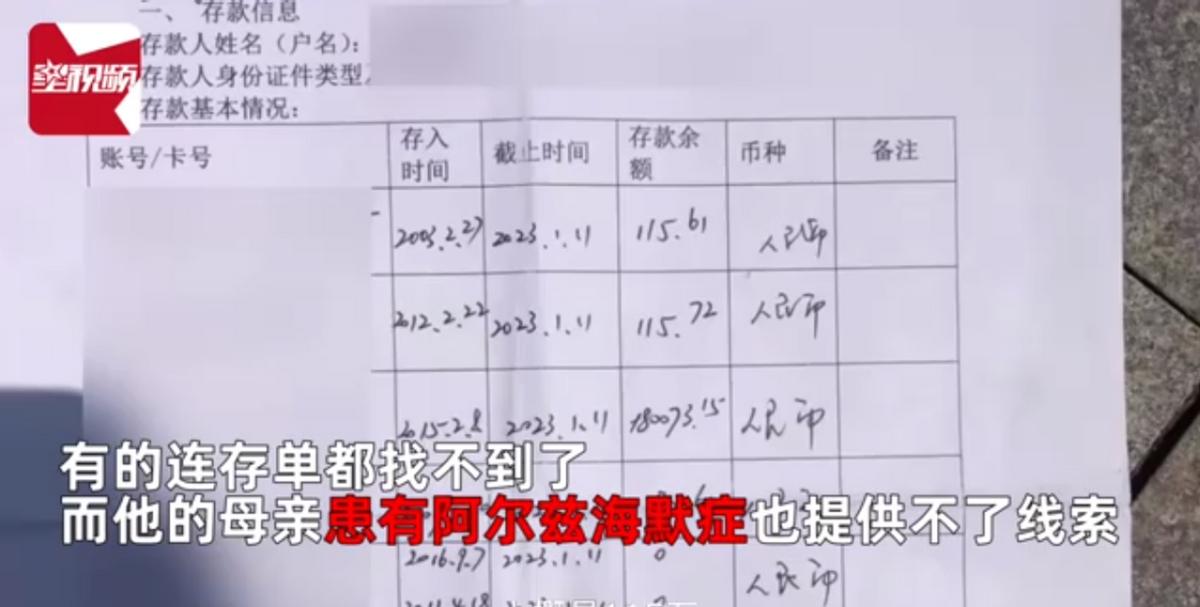 一、存款信息
存款人姓名（户名）：
存款人身份证件类型及
存款基本情况：
星视频
账号/卡号 存入时间 截止时间 存款余额 币种 备注
2003.2.27 2023.1.11 115.61 人民币
2012.2.22 2023.1.11 115.72 人民币
2015.2.8 2023.1.11 180073.15 人民币
有的连存单都找不到了
而他的母亲患有阿尔兹海默症也提供不了线索
2016.9.7 2023.1.11 0 人民币